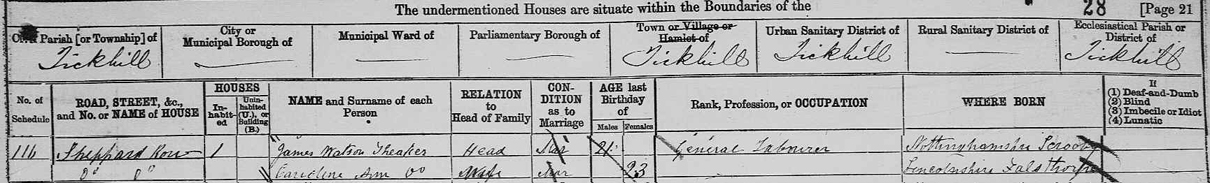 The undermentioned Houses are situate within the Boundaries of the 28 [Page 21
Civil Parish [or Township] of City or Municipal Borough of Municipal Ward of Parliamentary Borough of Town or Village or Hamlet of Urban Sanitary District of Rural Sanitary District of Ecclesiastical Parish or District of
Tickhill Tickhill Tickhill Tickhill
No. of Schedule ROAD, STREET, &c., and No. or NAME of HOUSE HOUSES Inhabited Uninhabited (U.), or Building (B.) NAME and Surname of each Person RELATION to Head of Family CONDITION as to Marriage AGE last Birthday of Males Females Rank, Profession, or OCCUPATION WHERE BORN If (1) Deaf-and-Dumb (2) Blind (3) Imbecile or Idiot (4) Lunatic
116 Sheppard Row 1 James Watson Theaker Head Mar 21 General Labourer Nottinghamshire Scrooby
Do Do Caroline Ann Do Wife Mar 23 Lincolnshire